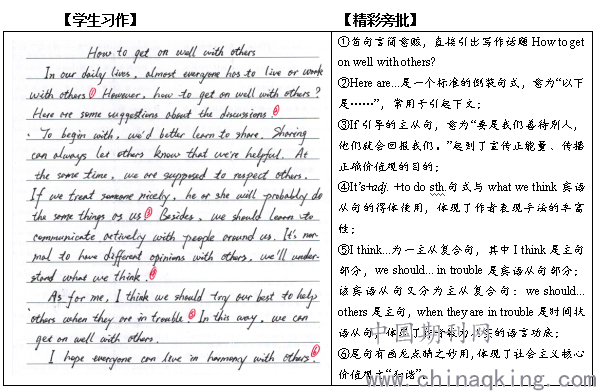 【学生习作】
How to get on well with others
In our daily lives, almost everyone has to live or work
with others① However, how to get on well with others?
Here are some suggestions about the discussions.②
To begin with, we'd better learn to share. Sharing
can always let others know that we're helpful. At
the same time, we are supposed to respect others.
If we treat someone nicely, he or she will probably do
the same things as us③ Besides, we should learn to
communicate actively with people around us. It's nor-
mal to have different opinions with others, we'll under-
stand what we think.④
As for me, I think we should try our best to help
others when they are in trouble⑤ In this way, we can
get on well with others.
I hope everyone can live in harmony with others.⑥
【精彩旁批】
①首句言简意赅，直接引出写作话题 How to get
on well with others?
②Here are...是一个标准的倒装句式，意为“以下
是……”，常用于引起下文；
③If 引导的主从句，意为“要是我们善待别人，
他们就会回报我们。”起到了宣传正能量、传播
正确价值观的目的；
④It's+adj. +to do sth.句式与 what we think 宾语
从句的得体使用，体现了作者表现手法的丰富
性；
⑤I think...为一主从复合句，其中 I think 是主句
部分，we should... in trouble 是宾语从句部分；
该宾语从句又分为主从复合句：we should...
others 是主句，when they are in trouble 是时间状
语从句，体现了作者较为扎实的语言功底；
⑥尾句有画龙点睛之妙用，体现了社会主义核心
价值观之“和谐”
中国期刊网
www.chinaqking.com